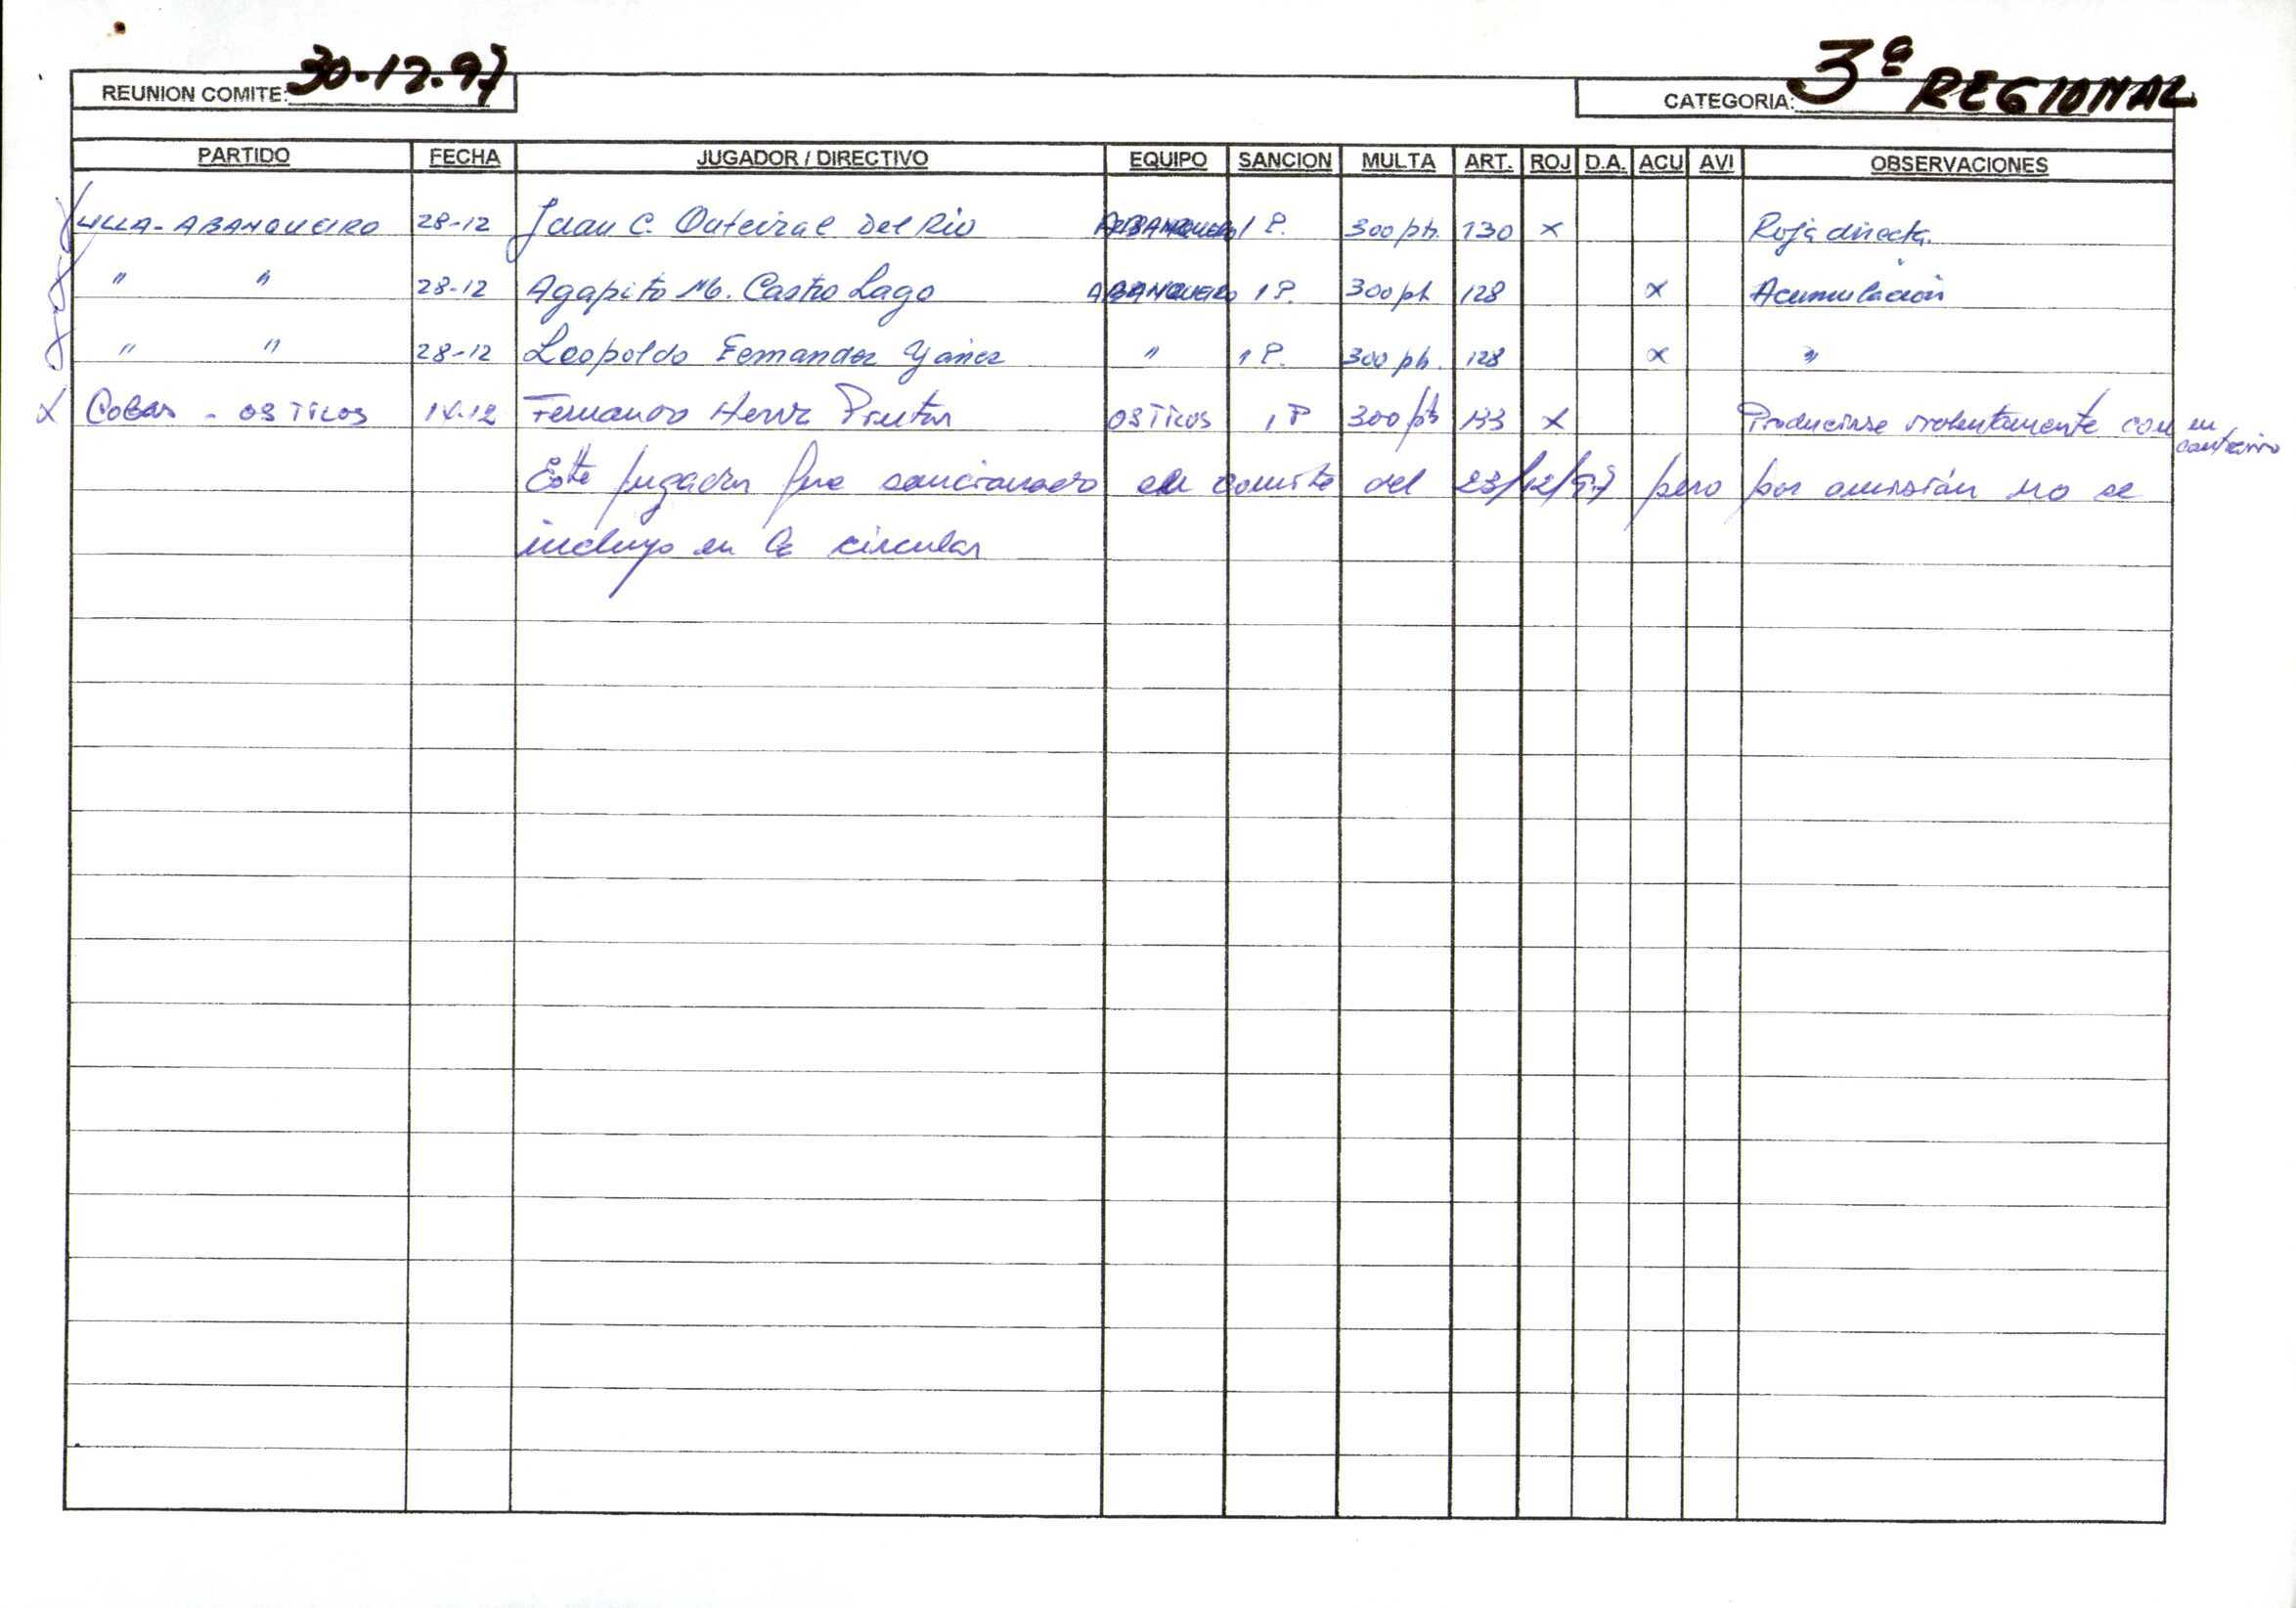 REUNION COMITE: 30-12-97
CATEGORIA: 3ª REGIONAL
PARTIDO FECHA JUGADOR / DIRECTIVO EQUIPO SANCION MULTA ART. ROJ D.A. ACU AVI OBSERVACIONES
ULLA - ABANQUEIRO 28-12 Juan C. Outeiral Del Rio ABANQUEIRO 1 P. 300 pts. 130 x Roja directa.
" " 28-12 Agapito M. Castro Lago ABANQUEIRO 1 P. 300 pt 128 x Acumulación
" " 28-12 Leopoldo Fernandez Yánez " 1 P. 300 pts. 128 x "
x Cobas - OS TICOS 12 Fernando OS TICOS 1 P 300 pts 133 x Producirse violentamente con un contrario
Este jugador fue sancionado en comite del 23/12/97 pero por omisión no se
incluyo en la circular